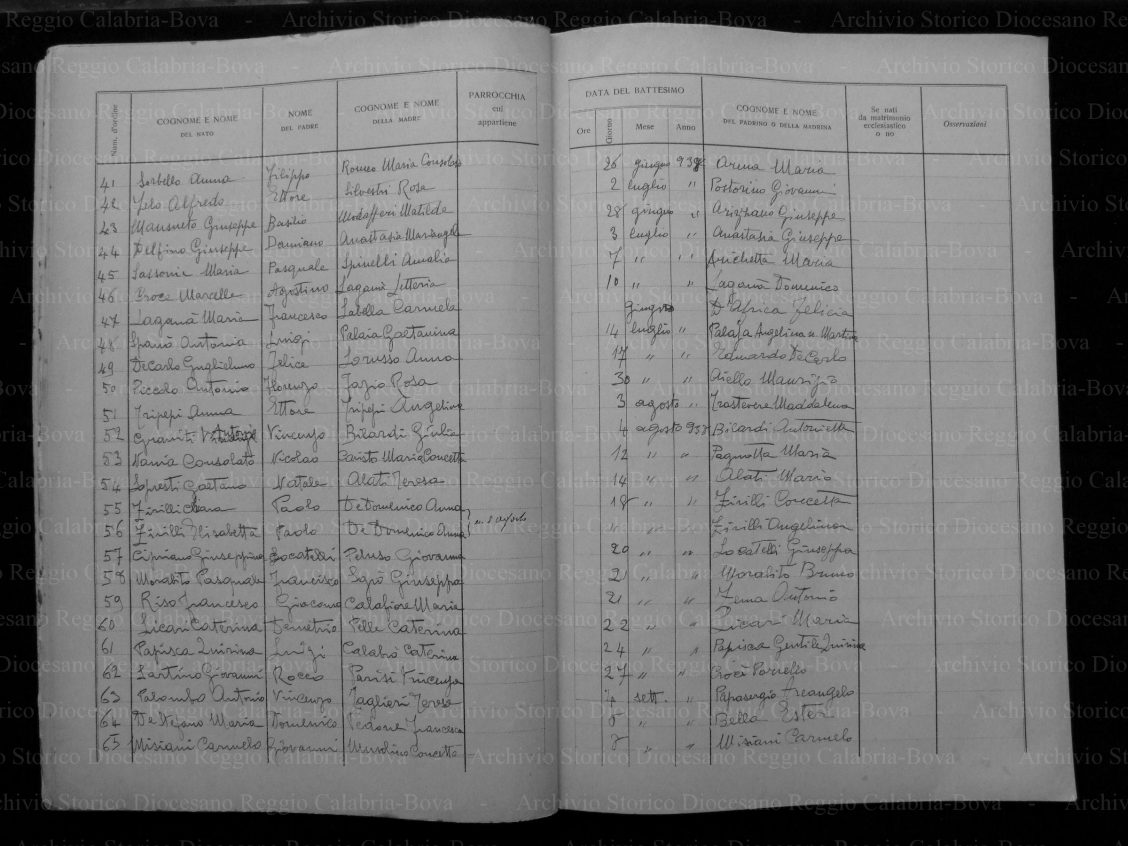 Archivio Storico Diocesano Reggio Calabria-Bova - Archivio Storico Diocesano Reggio Calabria-Bova
Num. d'ordine | COGNOME E NOME DEL NATO | NOME DEL PADRE | COGNOME E NOME DELLA MADRE | PARROCCHIA cui appartiene | DATA DEL BATTESIMO Ore Giorno Mese Anno | COGNOME E NOME DEL PADRINO O DELLA MADRINA | Se nati da matrimonio ecclesiastico o no | Osservazioni
41 Sorbello Anna Filippo Romeo Maria Consolata 26 giugno 938 Arena Maria
42 Alfredo Ettore Silvestri Rosa 2 luglio " Postorino Giovanni
43 Mansueto Giuseppe Basilio Modafferi Matilde 28 giugno " Giuseppe
44 Delfino Giuseppe Damiano Anastasia Mariangela 3 luglio " Anastasia Giuseppe
45 Sassonia Maria Pasquale Spinelli Amalia 7 " " Maria
46 Croce Marcello Agostino Laganà Letteria 10 " " Laganà Domenico
47 Laganà Maria Francesco Labella Carmela giugno D'Africa Felicia
48 Spanò Antonia Luigi Palaia Gaetanina 14 luglio " Palaja Angelina
49 De Carlo Guglielmo Felice Lorusso Anna 17 " " Edmardo De Carlo
50 Piccolo Antonio Florenzo Fazio Rosa 30 " " Aiello Maurizio
51 Tripepi Anna Ettore Tripepi Angelina 3 agosto " Trastevere Maddalena
52 Vincenzo Bilardi Giulia 4 agosto 938 Bilardi Antonietta
53 Nania Consolato Nicolao Caristo Maria Concetta 12 " " Pagnotta Maria
54 Lopresti Gaetano Natale Alati Teresa 14 " " Alati Maria
55 Zirilli Chiara Paolo De Domenico Anna 18 " " Zirilli Concetta
56 Zirilli Elisabetta Paolo De Domenico Anna n. 8 agosto " " " Zirilli Angelina
57 Cipriano Giuseppina Locatelli Peluso Giovanna 20 " " Locatelli Giuseppa
58 Morabito Pasquale Francesco Sapò Giuseppa 21 " " Morabito Bruno
59 Riso Francesco Giacomo Calafiore Maria 21 " " Zema Antonio
60 Licari Caterina Demetrio Pelle Caterina 22 " " Licari Maria
61 Papisca Quirina Luigi Calabrò Caterina 24 " " Papisca Gentile Quirina
62 Sartino Giovanni Rocco Parisi Vincenza 27 " " Croci
63 Palombo Antonio Vincenzo Taglieri Teresa 7 sett. " Papasergio Arcangelo
64 De Stefano Maria Domenico Pedone Francesca 8 " " Bella Ester
65 Misiani Carmelo Giovanni Musolino Concetta 8 " " Misiani Carmelo